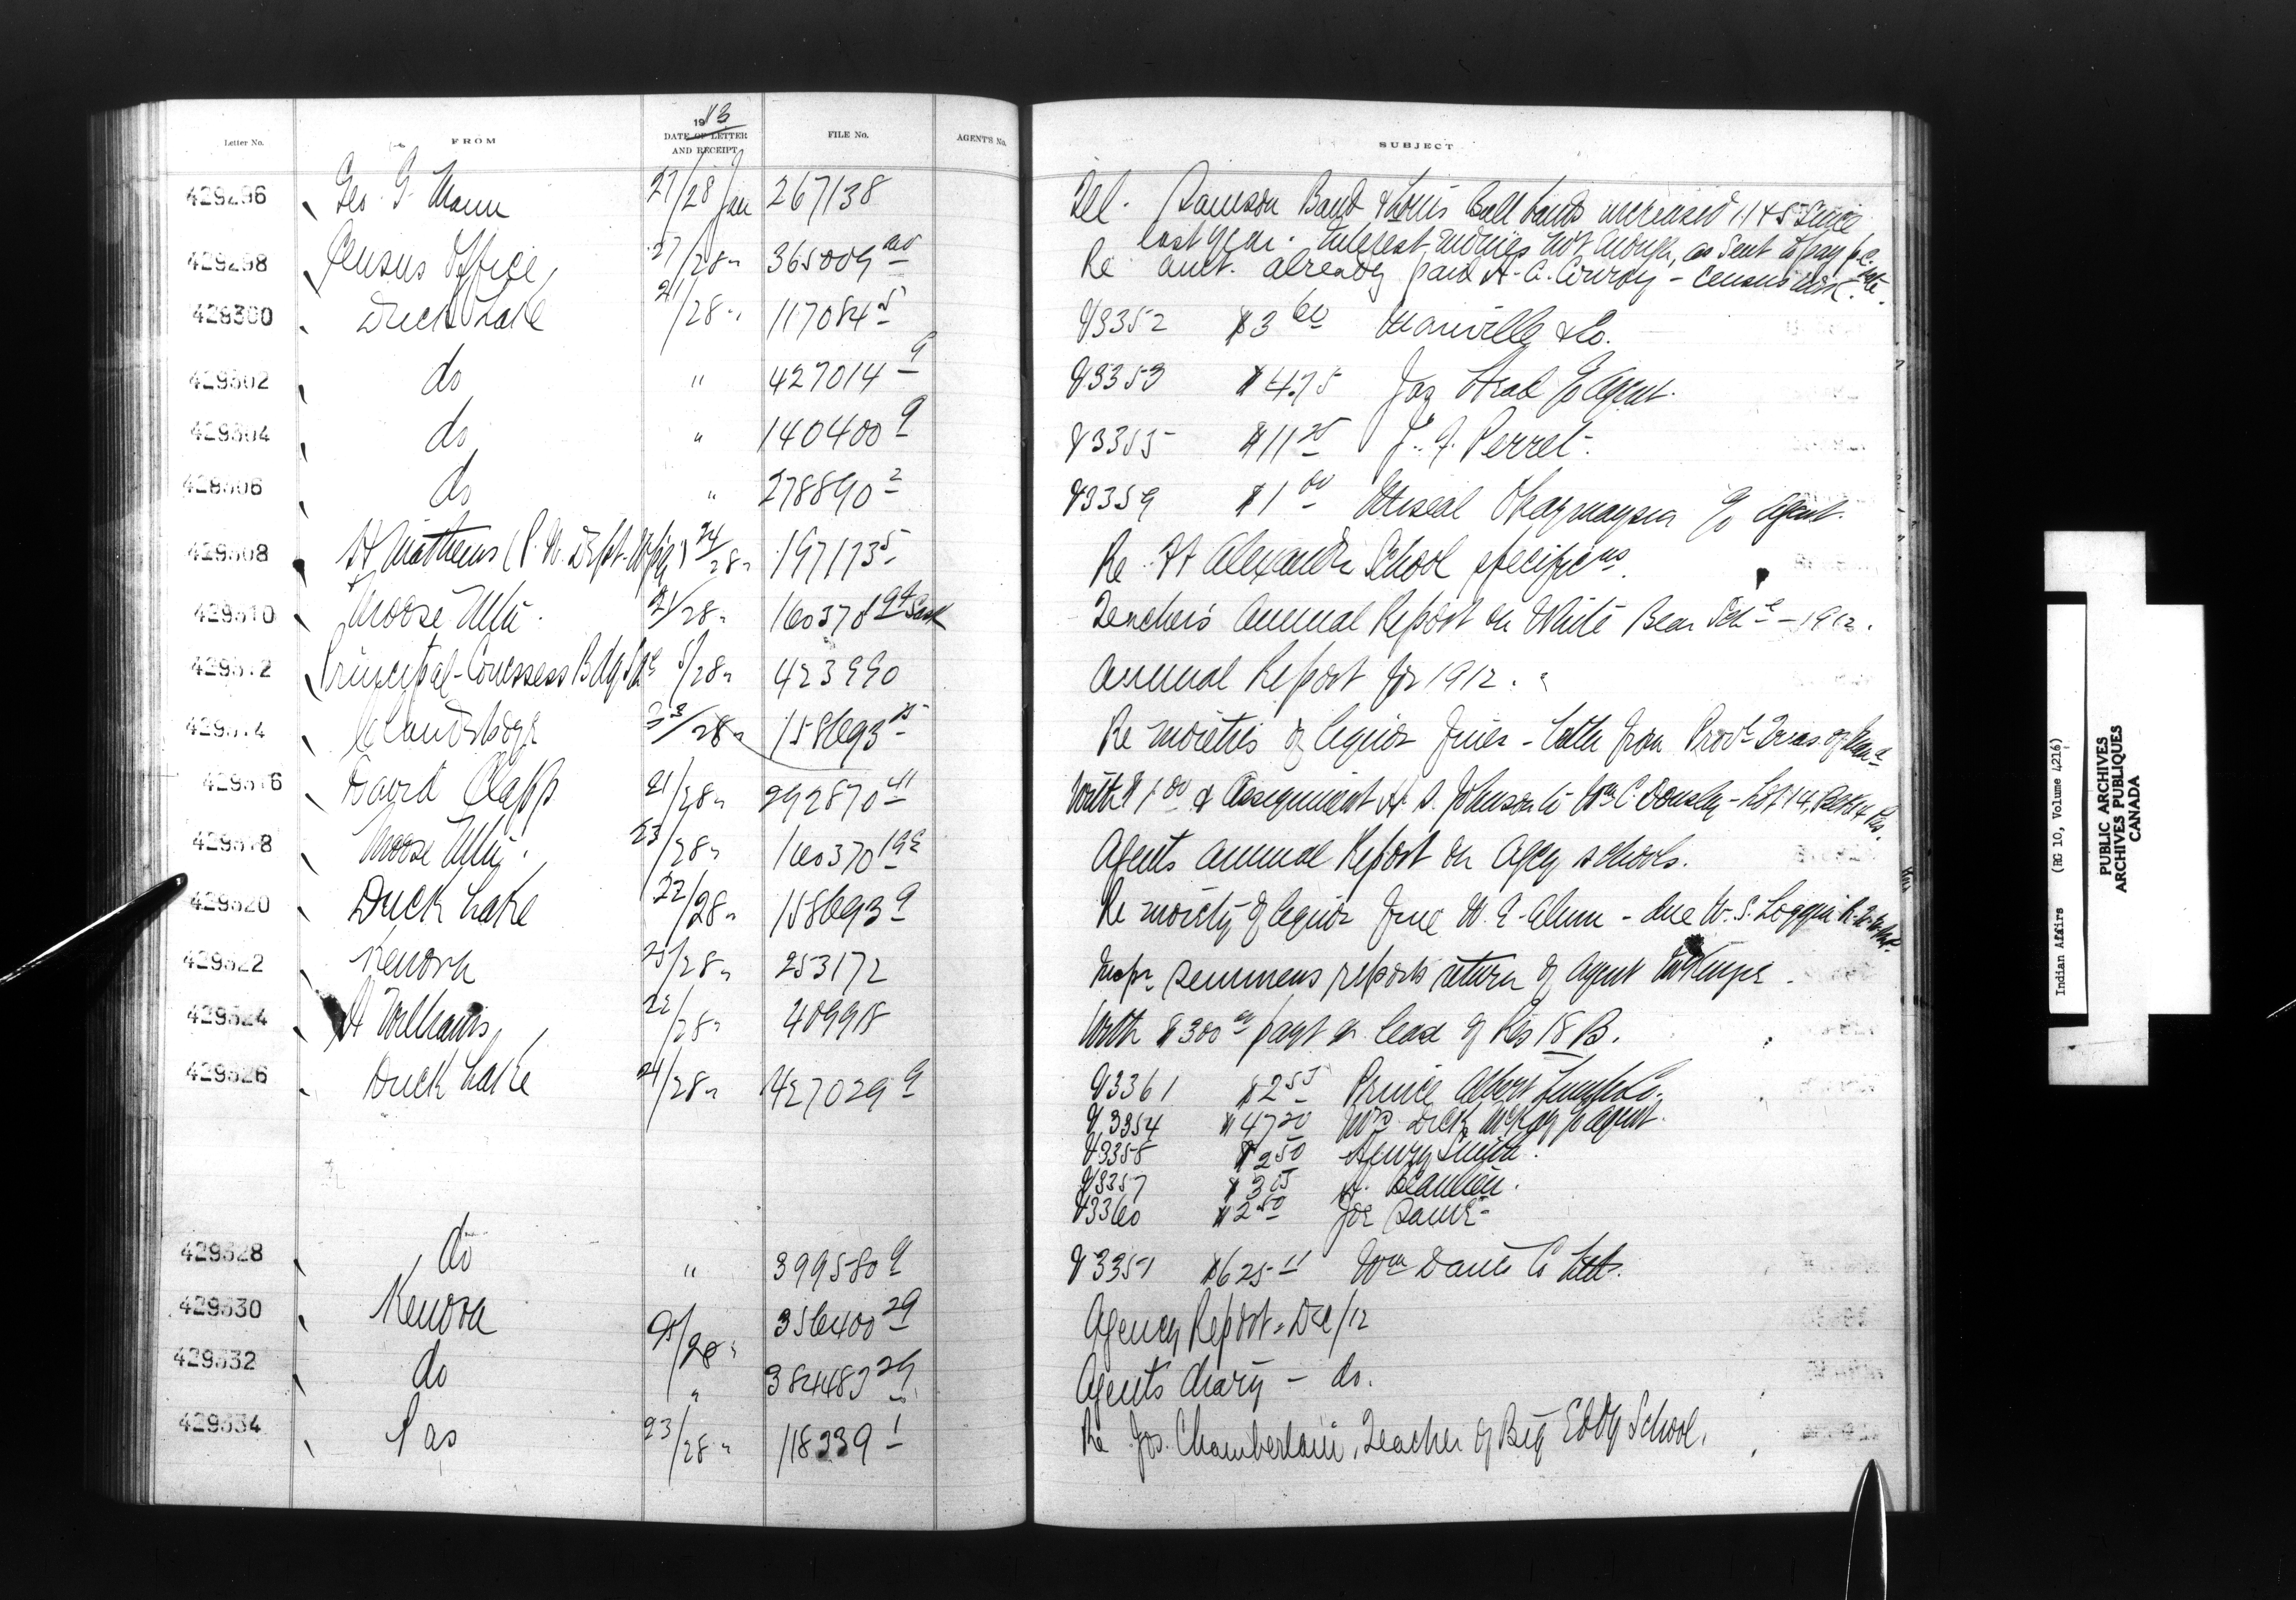 1913
Letter No. FROM DATE OF LETTER AND RECEIPT FILE No. AGENT'S No. SUBJECT
429296 Geo. G. Mann 27/28 Jan 267138 Tel. Samson Band & Louis Bull bands increased 11 & 5 since
last year. Interest monies not enough, as sent to pay
429298 Census Office, 27/28 " 365009 Re amt. already paid A. C. Conroy - Census
429300 Duck Lake 21/28 " 117084 5 93352 $3 60 Manville & Co.
429302 do " 427014 9 93353 $4.75 Agent.
429304 do " 140400 9 93355 $11 25 Perret.
429306 do " 278890 2 93359 $1 00 Agent.
429308 H. Matthews (P.W. Dept. Wpg) 24/28 " 197173 5 Re Ft Alexander School specificns.
429310 Moose Mtn. 21/28 " 160370 19 Sask Teacher's Annual Report on White Bear Schl - 1912.
429312 Principal - Cowessess Bdg Schl 5/28 " 423990 Annual Report for 1912.
429314 Clandeboye 23/28 " 158693 15 Re moieties of liquor fines - both from Provl Treas. of Man.
429316 David Clapp 21/28 " 292870 41 With $1 00 & Assignment H. S. Johnson to Wm C. - Lot 14,
429318 Moose Mtn. 23/28 " 160370 19 Agents Annual Report on Agcy schools.
429320 Duck Lake 22/28 " 158693 9 Re moiety of liquor fine - due W. S. Loggin
429322 Kenora 25/28 " 253172 Inspr Semmens reports return of Agent McKenzie.
429324 H Williams, 22/28 " 409918 With $300 payt on lease of Res 18 B.
429326 Duck Lake 24/28 " 427029 9 93361 $2 55 Prince Albert Lumber Co.
93354 $47 20 Mrs Dick McKay Agent.
93358 $2 50 Henry Smith.
93357 $3 A. Beaulieu.
93360 $2 50 Joe
429328 do " 399580 9 93351 $625 11 Wm Davis Co Ltd.
429330 Kenora 25/28 " 356400 29 Agency Report - Dec/12
429332 do " 384483 29 Agents diary - do.
429334 Pas 23/28 " 118239 1 Re Jos. Chamberlain, Teacher of Big Eddy School.
Indian Affairs (RG 10, Volume 4216)
PUBLIC ARCHIVES
ARCHIVES PUBLIQUES
CANADA